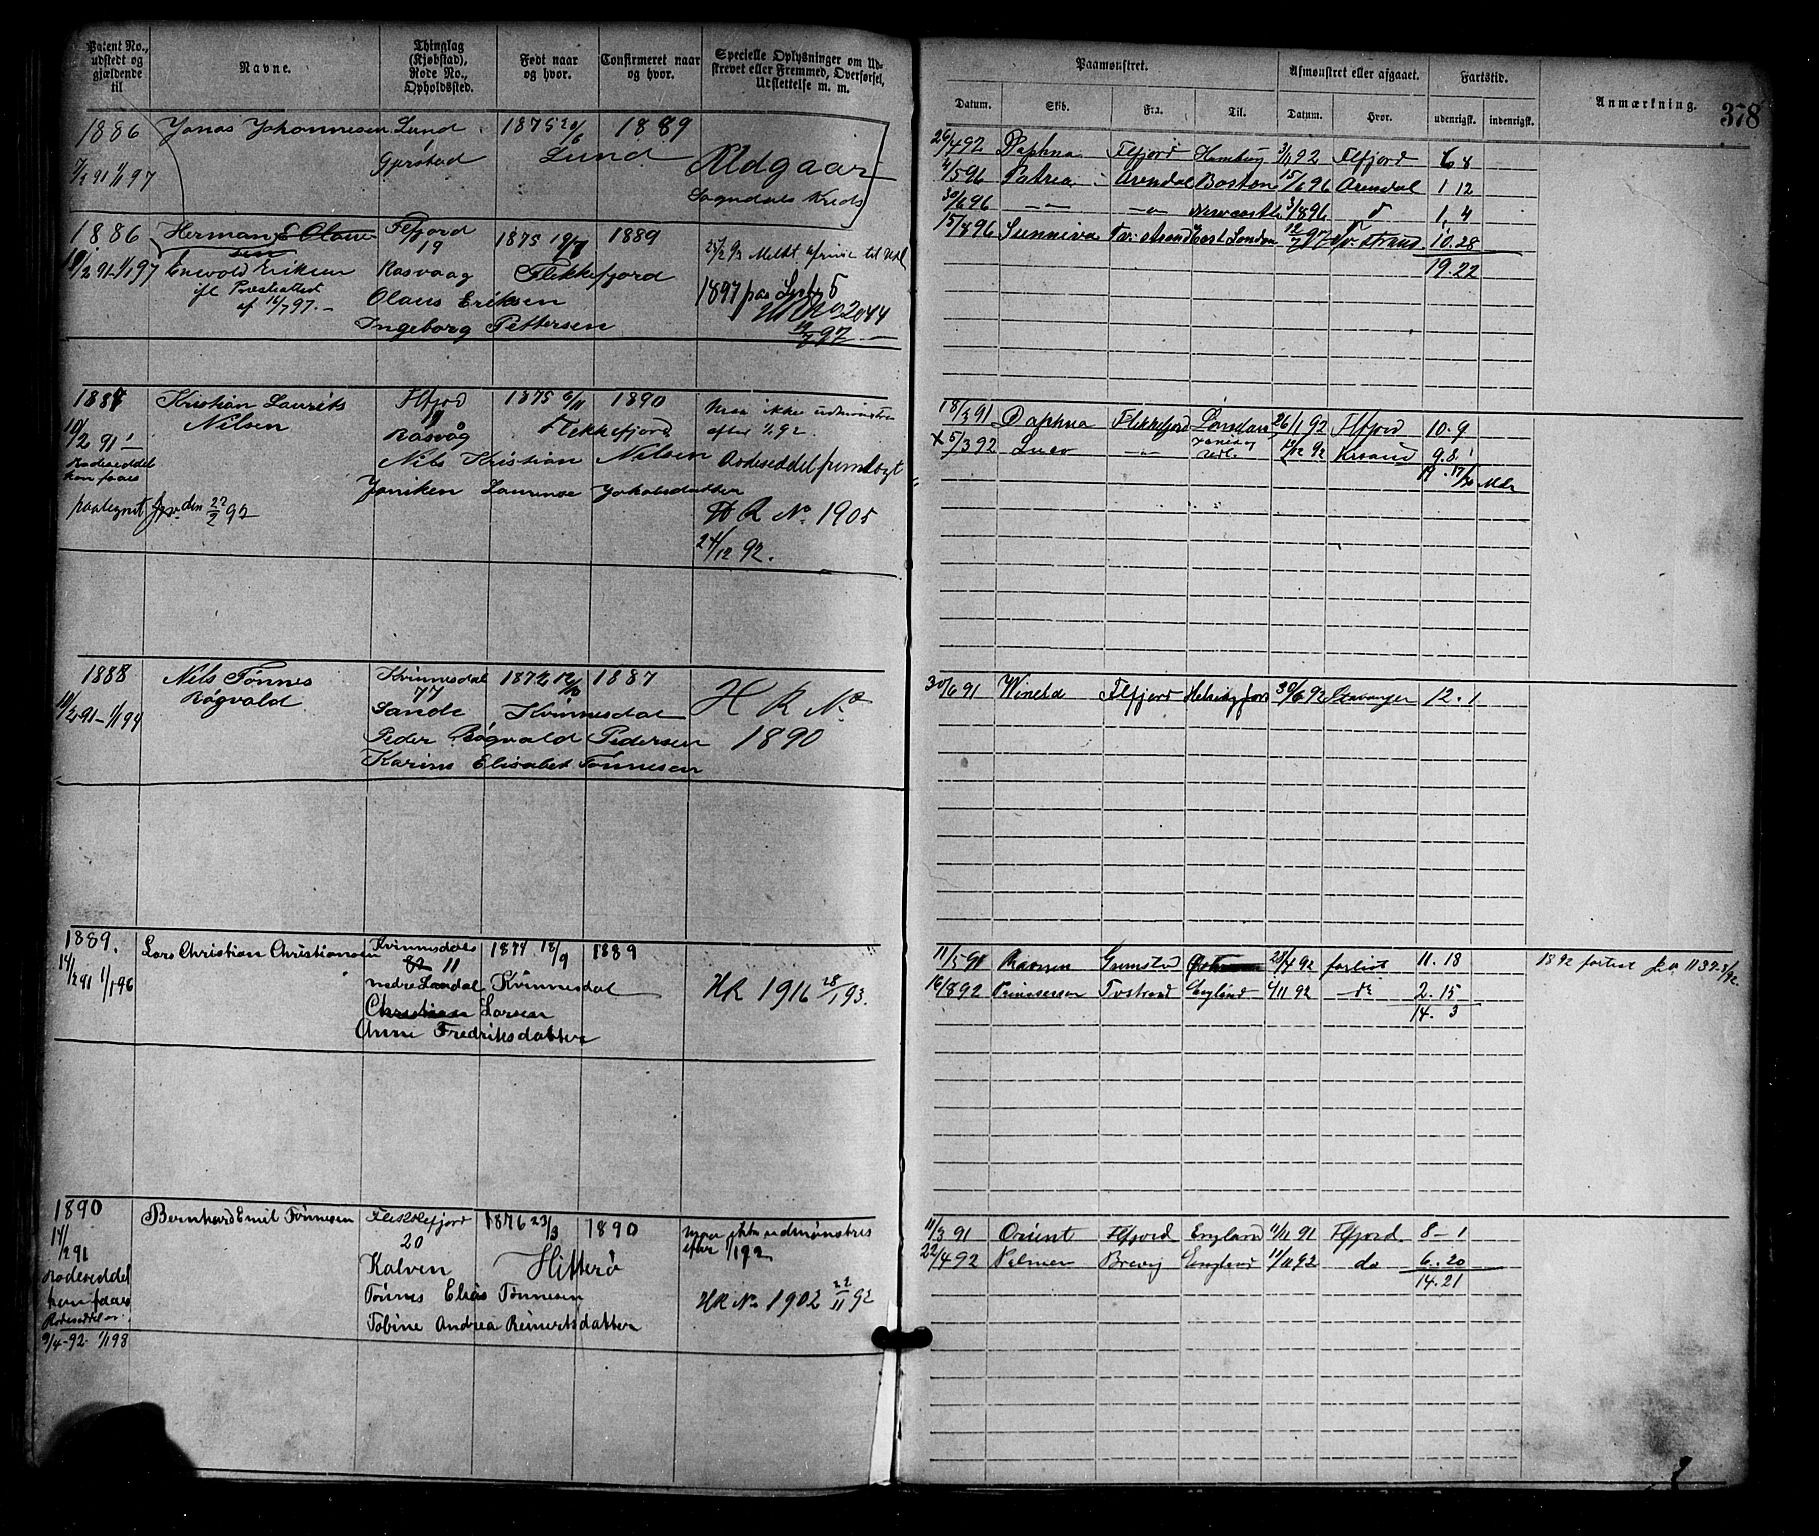 Patent No., udstedt og gjældende til
Navne.
Thinglag (Kjøbstad), Rode No., Opholdssted.
Født naar og hvor.
Confirmeret naar og hvor.
Specielle Oplysninger om Udstrevet eller Fremmed, Overførsel, Udslettelse m. m.
Paamønstret.
Datum.
Skib.
Fra.
Til.
Afmønstret eller afgaaet.
Datum.
Hvor.
Fartstid.
udenrigsk.
indenrigsk.
Anmærkning.
378
1886 Jonas Johannesen Lund 1875 20/6 1889
Gjerstad Lund
1/1 97
Afgaar
Sogndals Kreds
1886 Herman E Olausen Flfjord 1875 19/7 1889
19
10/2 91 1/1 97 Enevold Eriksen Rasvaag Flekkefjord
ifl Præsteattest
af 16/7 97.
Olaus Eriksen
Ingeborg Pettersen
1897 paa
2044
12/7 97
26/4 92 Daphna Flfjord Hamburg 3/1 92 Flfjord 6 8
4/5 96 Patria Arendal Boston 15/6 96 Arendal 1 12
30/6 96 — — Newcastle 3/8 96 1. 4
15/8 96 Sunniva Tvedestrand East London 12/7 97 10. 28
19. 22
1887 Kristian Laurits Nilsen Flfjord 1875 6/11 1890
10/2 91 Rasvåg Flekkefjord
Rodeseddel
kan faaes
Nils Kristian Nilsen
Joniken Laurense Jakobsdatter
paategnet den 22/2 92
maa ikke udmønstres
efter 1/1 92
Rodeseddel fremlagt
H R No 1905
24/12 92.
18/3 91 Daphna Flekkefjord 26/1 92 Flfjord 10. 9
5/3 92 — 9. 8
1888 Nils Tønnes Røgvald Kvinnesdal 1872 12/10 1887
77
10/2 91 – 1/1 94 Sande Kvinnesdal
Peder Røgvald Pedersen
Karine Elisabet Tønnesen
H R No
1890
30/6 91 Flfjord Helsingfors 30/6 92 Stavanger 12. 1
1889. Lars Christian Christiansen Kvinnesdals 1874 18/9 1889
82 11
14/2 91 1/1 96 nedre Landal Kvinnesdal
Christian Larsen
Anne Fredriksdatter
HR 1916 28/1 93.
11/5 91 Ravnen Grimstad 28/4 92 forlist 11. 18
16/8 92 Tvstrand England 4/11 92 do 2. 15
14. 3
1892 forlist
1890 Bernhard Emil Tønnesen Flekkefjord 1876 23/3 1890
20
14/2 91 Kalven Hitterø
Rodeseddel
kan faaes
Tønnes Elias Tønnesen
Tobine Andrea Reinertsdatter
9/4-92 1/1 98
maa ikke udmønstres
efter 1/1 92
HR No 1902 22/11 92
11/3 91 Orient Flfjord England 11/11 91 Flfjord 8 – 1
22/4 92 Palmen Brevig England 11/11 92 do 6. 20
14. 21